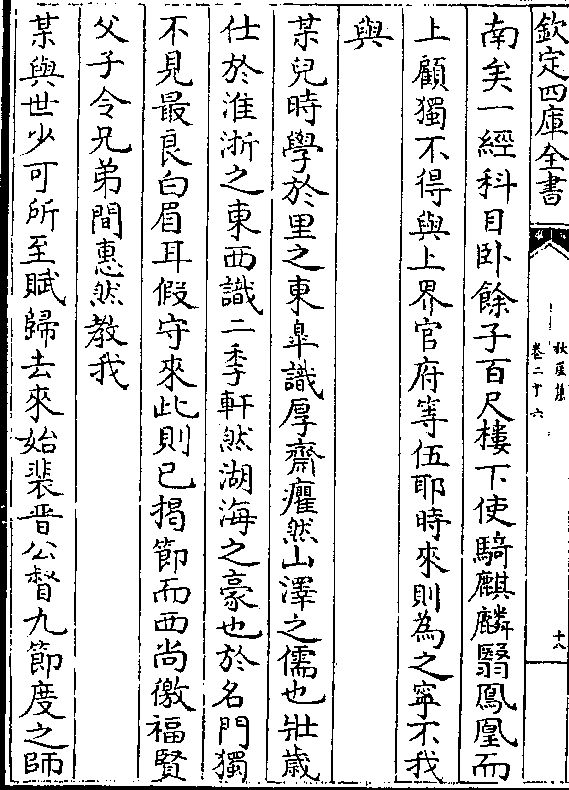 欽定四庫全書
秋崖集
卷二十六
十八
南矣一經科目卧餘子百尺樓下使騎麒麟翳鳳凰而
上顧獨不得與上界官府等伍耶時來則為之寧不我
與
某兒時學於里之東臯識厚齋癯然山澤之儒也壯歲
仕於淮浙之東西識二季軒然湖海之豪也於名門獨
不見最良白眉耳假守來此則已揭節而西尚徼福賢
父子令兄弟間惠然教我
某與世少可所至賦歸去來始裴晋公督九節度之師